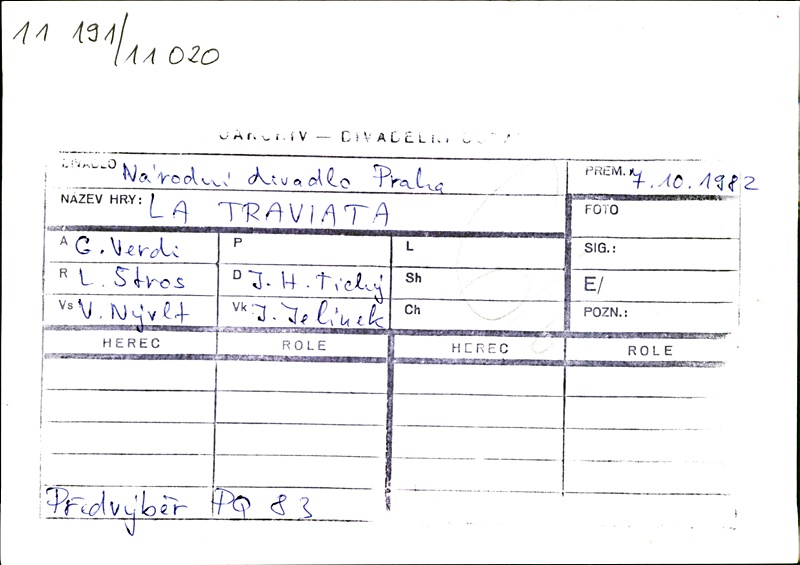 11 191/11 020
DIVADLO Národní divadlo Praha PREM. 7.10.1982
NÁZEV HRY: LA TRAVIATA FOTO
A G. Verdi P L SIG.:
R L. Štros D J. H. Tichý Sh E/
Vs V. Nývlt Vk J. Jelínek Ch POZN.:
HEREC ROLE HEREC ROLE
Předvýběr PQ 83